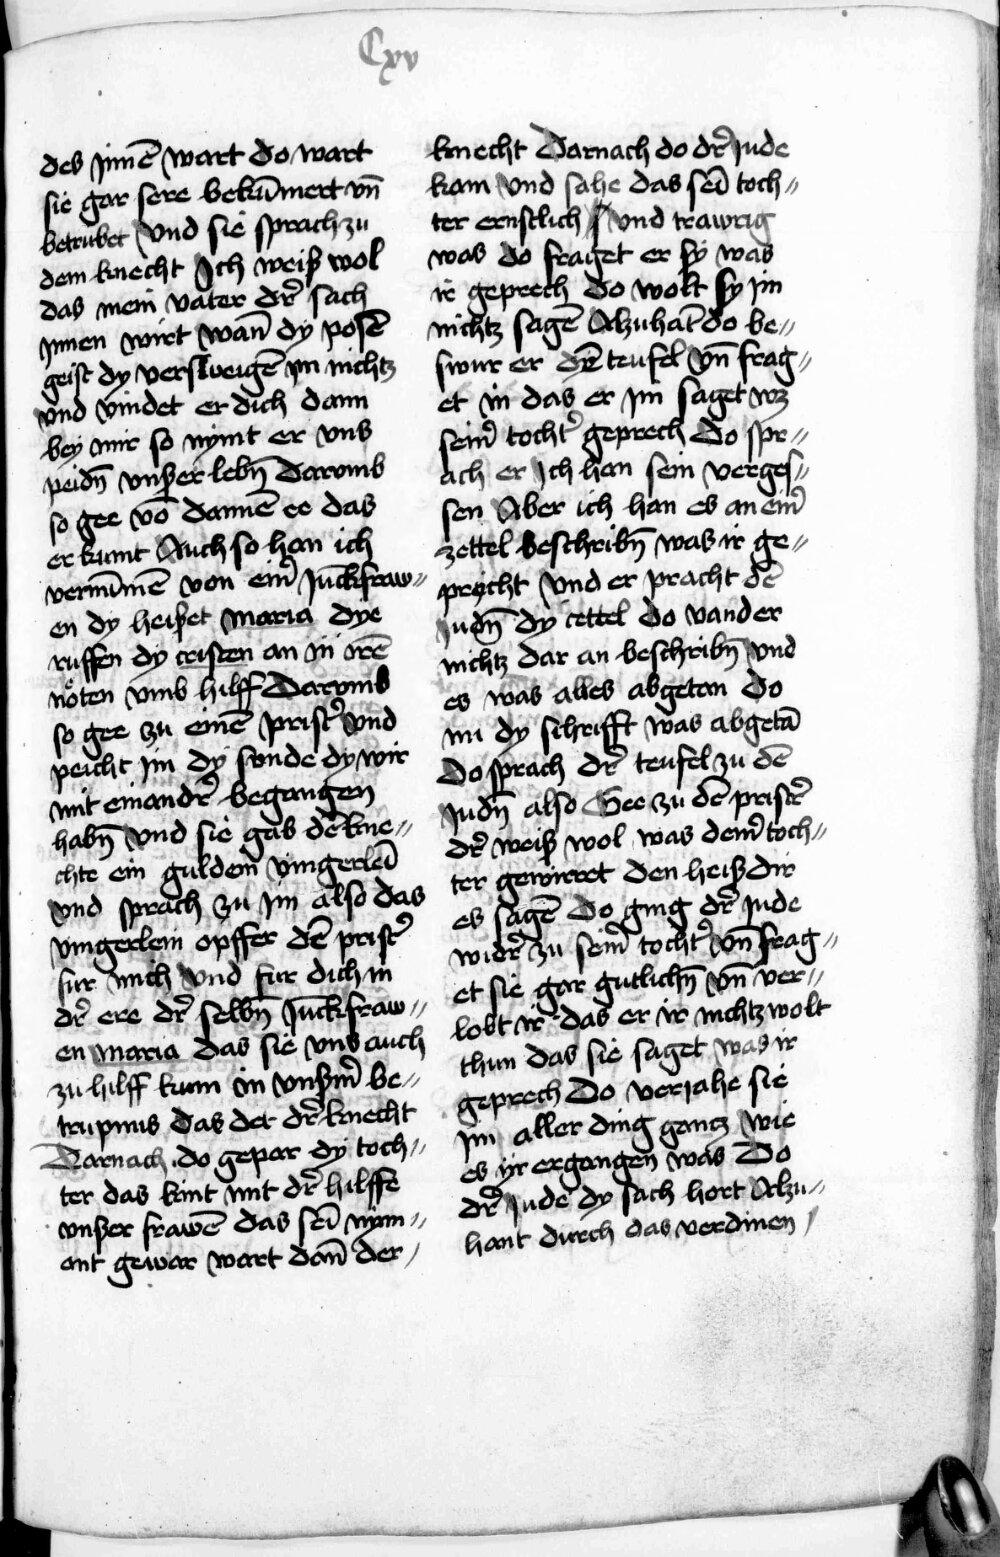 Cxv
des jnnē wart do wart
sie gar sere bekūmert vn̄
betrubet Vnd sie sprach zu
dem knecht Ich weiß wol
das mein vater dr̄ sach
jnnen wirt wan̄ dy posē
geist dy versweigē im nichtz
vnd vindet er dich dann
bey mir so nymt er vns
peidn̄ vnßer lebn̄ darvmb
so gee vō dannē ee das
er kumt Auch so han ich
vernūmē von eim̄ Jūckfraw〃
en dy heißet maria dye
ruffen dy cristen an in irē
nöten vmb hilff Darvmb
so gee zu einē pristr̄ Vnd
peicht im dy sunde dy wir
mit einandr̄ begangen
habn̄ Vnd sie gab dē kne〃
chte ein guldein vingerleī
Vnd sprach zu im also das
vingerlein opffer dē pristr̄
fur mich Vnd fur dich in
dr̄ ere dr̄ selbn̄ Jūckfraw〃
en maria das sie vns auch
zu hilff kum in vnßm̄ be〃
trupnus das det dr̄ knecht
Darnach do gepar dy toch〃
ter das kint mit dr̄ hilffe
vnßer frawē das seī nÿm〃
ant gewar wart dan̄ der/
knecht Darnach do dr̄ jude
kam Vnd sahe das seī toch〃
ter ernstlich Vnd trawrig
was do fraget er sy was
ir geprech do wolt sy im
nichtz sagē Alzuhāt do be〃
swur er dē teufel vn̄ frag〃
et in das er im saget wz
seinr̄ tochtr̄ geprech Do spr〃
ach er Ich han sein verges〃
sen Aber ich han es an eim̄
zettel beschribn̄ was ir ge〃
pricht Vnd er pracht dē
judn̄ dy cettel do vand er
nichtz dar an beschribn̄ Vnd
es was alles abgetan do
nu dy schrifft was abgetā
Do sprach dr̄ teufel zu dē
judn̄ also Gee zu dē pristr̄
dr̄ weiß wol was deinr̄ toch〃
ter gewirret den heiß dir
es sagē Do ging dr̄ jude
widr̄ zu seinr̄ tochtr̄ vn̄ frag〃
et sie gar gutlichn̄ vn̄ ver〃
lobt ir das er ir nichtz wolt
thun das sie saget was ir
geprech Do verjahe sie
im aller ding gantz wie
es ÿr ergangen was Do
dr̄ jude dy sach hort Alzu〃
hant durch das verdinen /